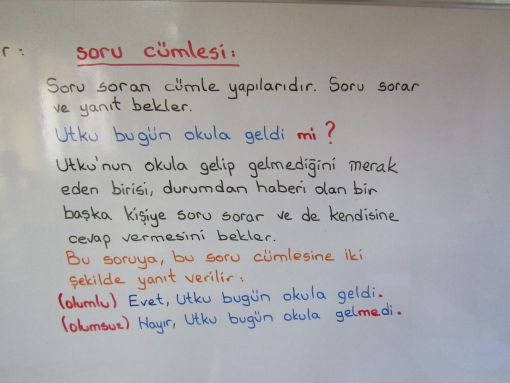 r :
soru cümlesi :
Soru soran cümle yapılarıdır. Soru sorar
ve yanıt bekler.
Utku bugün okula geldi mi ?
Utku'nun okula gelip gelmediğini merak
eden birisi, durumdan haberi olan bir
başka kişiye soru sorar ve de kendisine
cevap vermesini bekler.
Bu soruya, bu soru cümlesine iki
şekilde yanıt verilir :
(olumlu) Evet, Utku bugün okula geldi.
(olumsuz) Hayır, Utku bugün okula gelmedi.